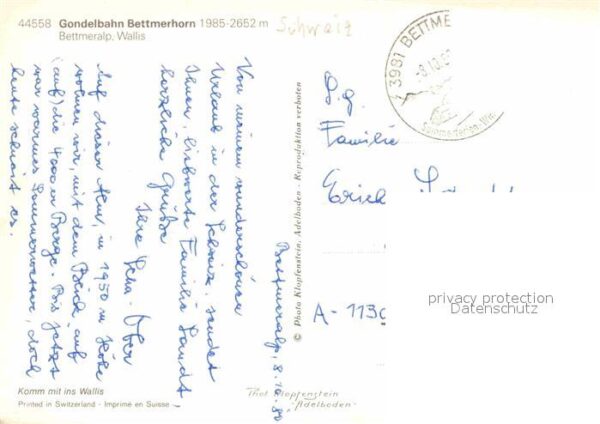 44558 Gondelbahn Bettmerhorn 1985-2652 m
Bettmeralp, Wallis
Schweiz
3981 BETTME
-8.10.8
Sommerferien-Win
Bettmeralp, 8.10.80
Von meinem wunderschönen
Urlaub in der Schweiz, sendet
Ihnen, liebwerte Familie Sandt-
herzliche Grüße
Ihre Lena
Auf dieser Alm, in 1950 m Höhe
wohnen wir, mit dem Blick auf
(auf) die 4000er Berge. Bis jetzt
war warmes Sommerwetter, doch
heute schneit es.
© Photo Klopfenstein, Adelboden - Reproduktion verboten
Familie
Erich
A - 1130
privacy protection
Datenschutz
Komm mit ins Wallis
Printed in Switzerland - Imprimé en Suisse
Phot. Klopfenstein
-Adelboden-